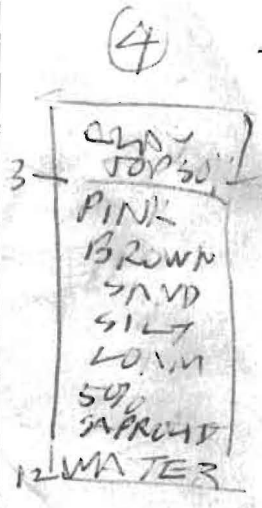 4
CLAY
TOPSOIL
3
PINK
BROWN
SAND
SILT
LOAM
5%
SAPROLITE
12 WATER